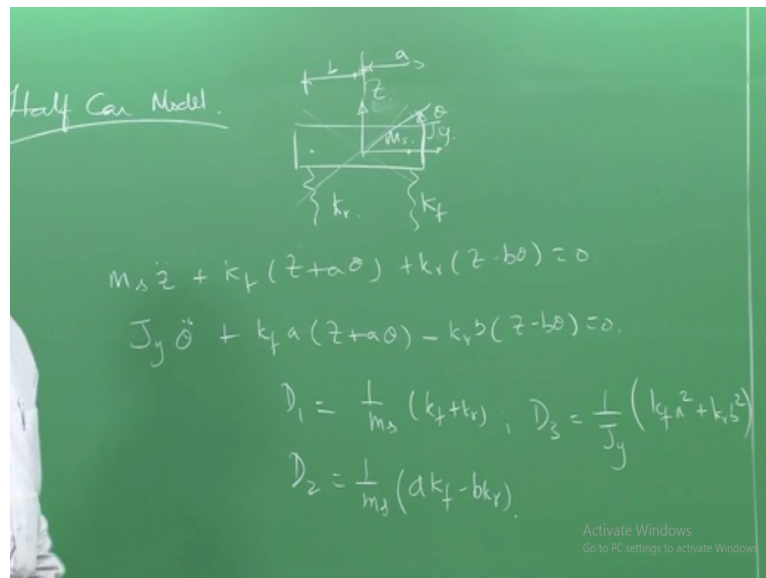 b a
Half Car Model.
Z
θ
m_s J_y
k_r k_f
m_s z̈ + k_f (z+aθ) + k_r (z-bθ) = 0
J_y θ̈ + k_f a (z+aθ) - k_r b (z-bθ) = 0.
D_1 = 1/m_s (k_f+k_r) ; D_3 = 1/J_y (k_f a² + k_r b²)
D_2 = 1/m_s (ak_f - bk_r).
Activate Windows
Go to PC settings to activate Windows.